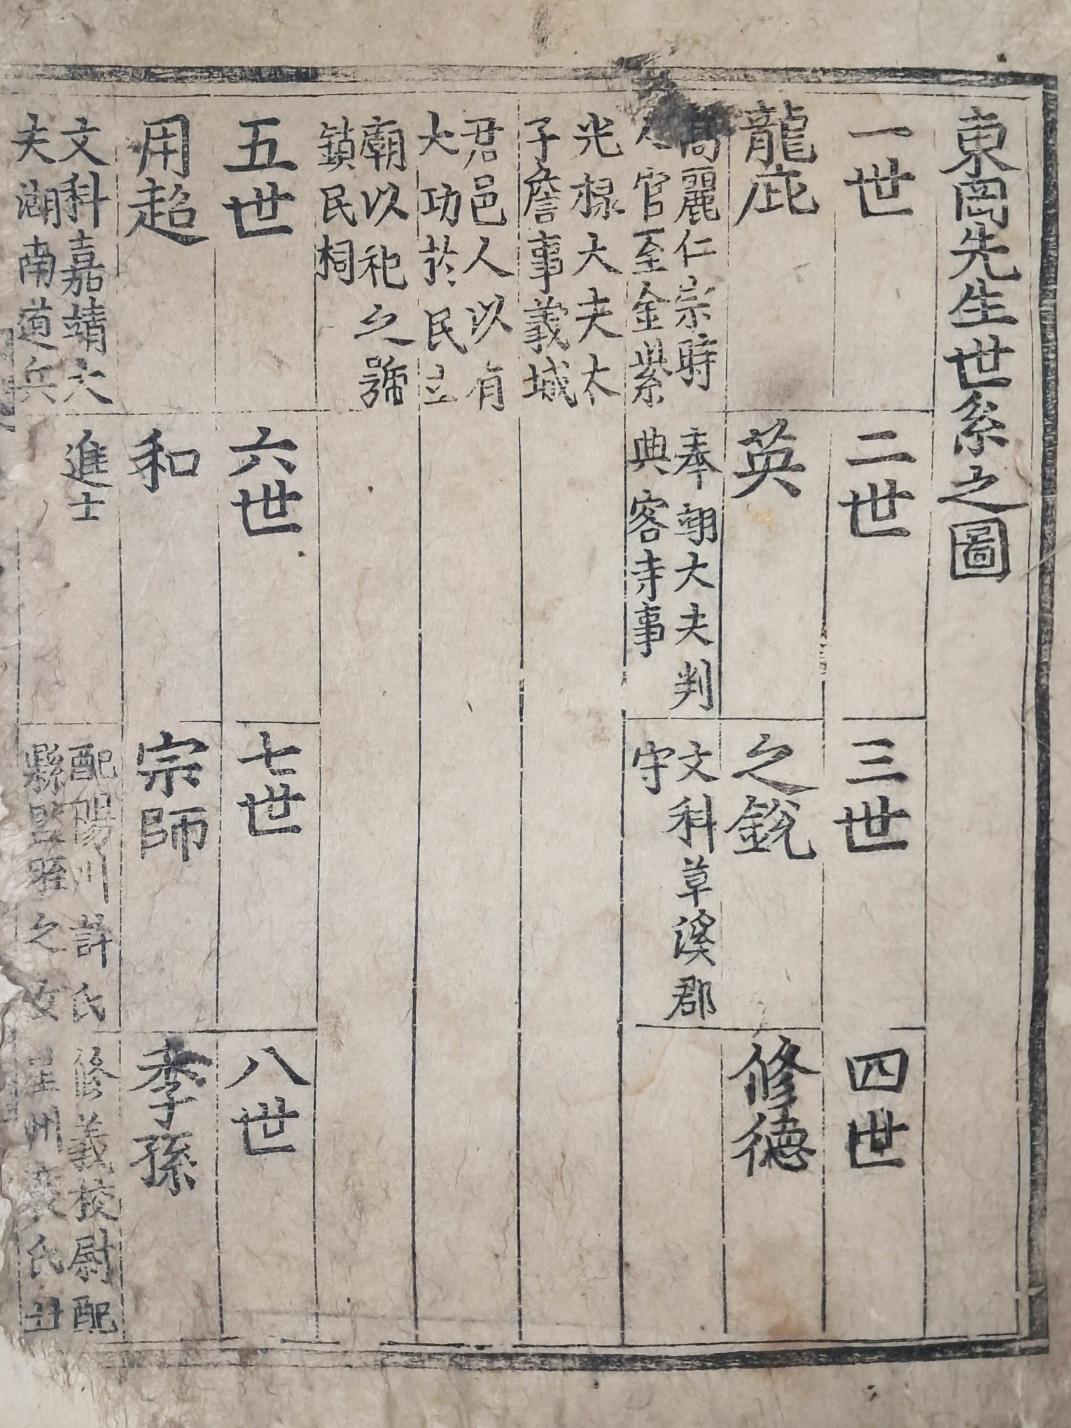 東岡先生世系之圖
一世
龍庇
高麗仁宗時
人官至金紫
光祿大夫太
子詹事義城
君邑人以有
大功於民立
廟以祀之號
鎭民祠
二世
英
奉翊大夫判
典客寺事
三世
之銳
文科草溪郡
守
四世
修德
五世
用超
文科嘉靖大
夫湖南道兵
六世
和
進士
七世
宗師
配陽川許氏
縣監 之女
八世
李孫
修義校尉配
星州裵氏